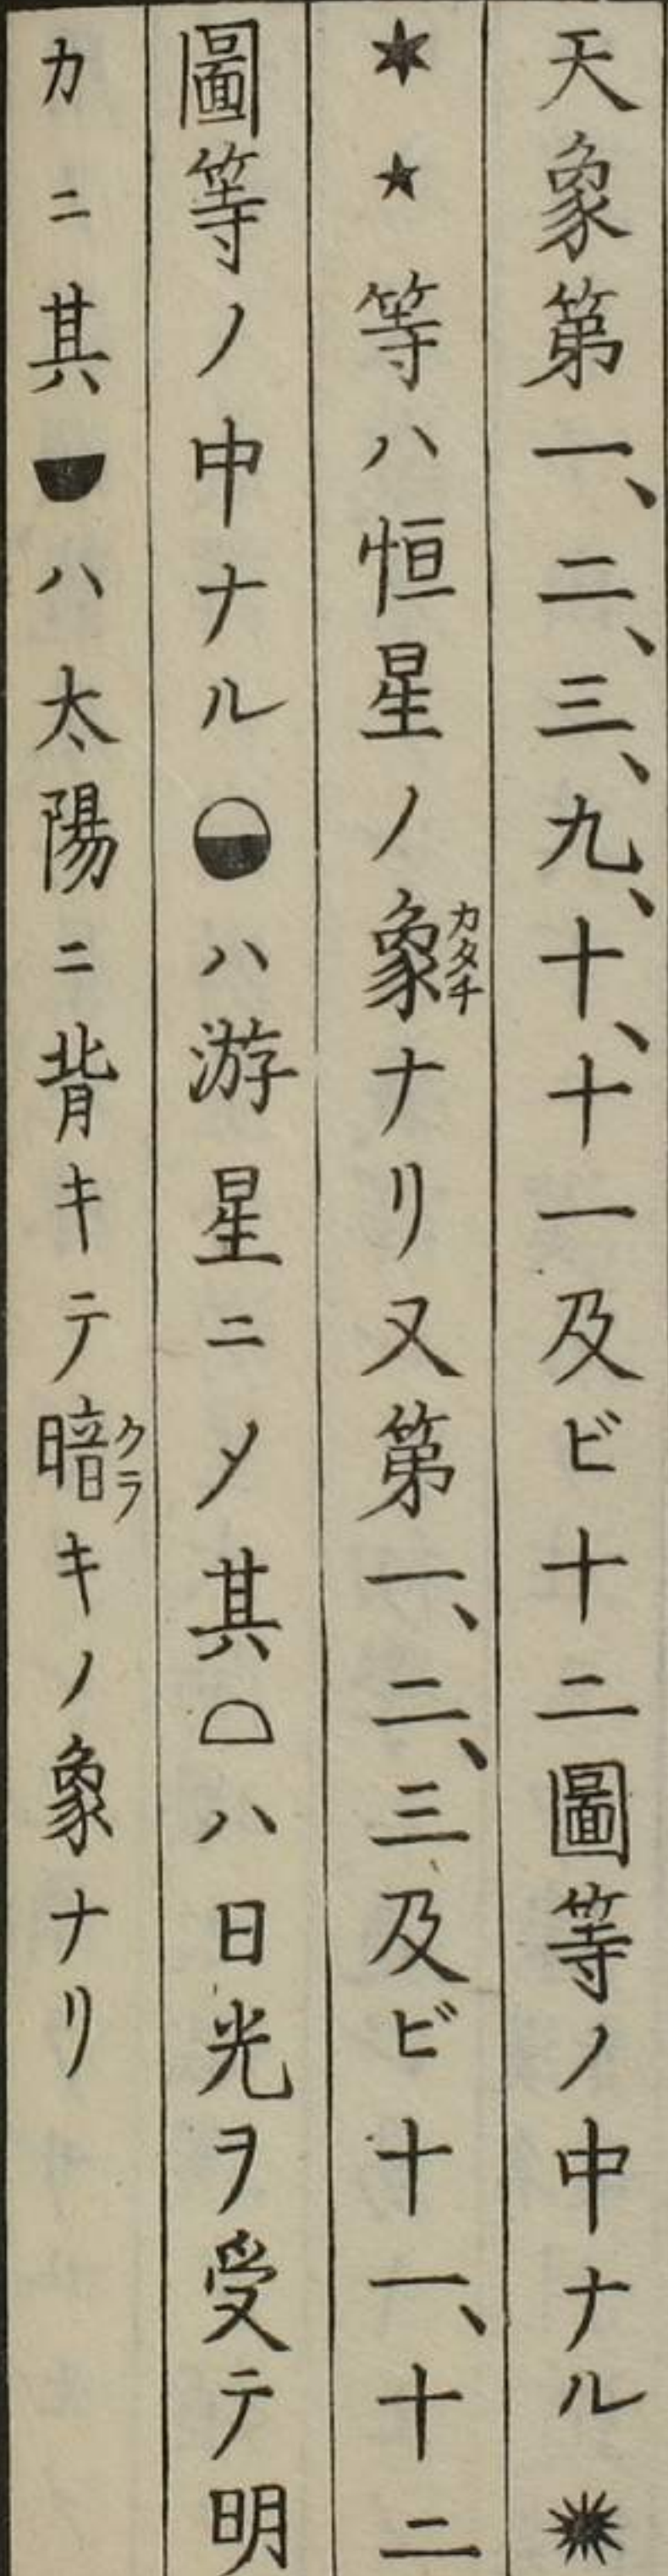 天象第一、二、三、九、十、十一及ビ十二圖等ノ中ナル✹
✶★等ハ恒星ノ象カタチナリ又第一、二、三及ビ十一、十二
圖等ノ中ナル◒ハ游星ニ〆其◠ハ日光ヲ受テ明
カニ其◡ハ太陽ニ背キテ暗クラキノ象ナリ